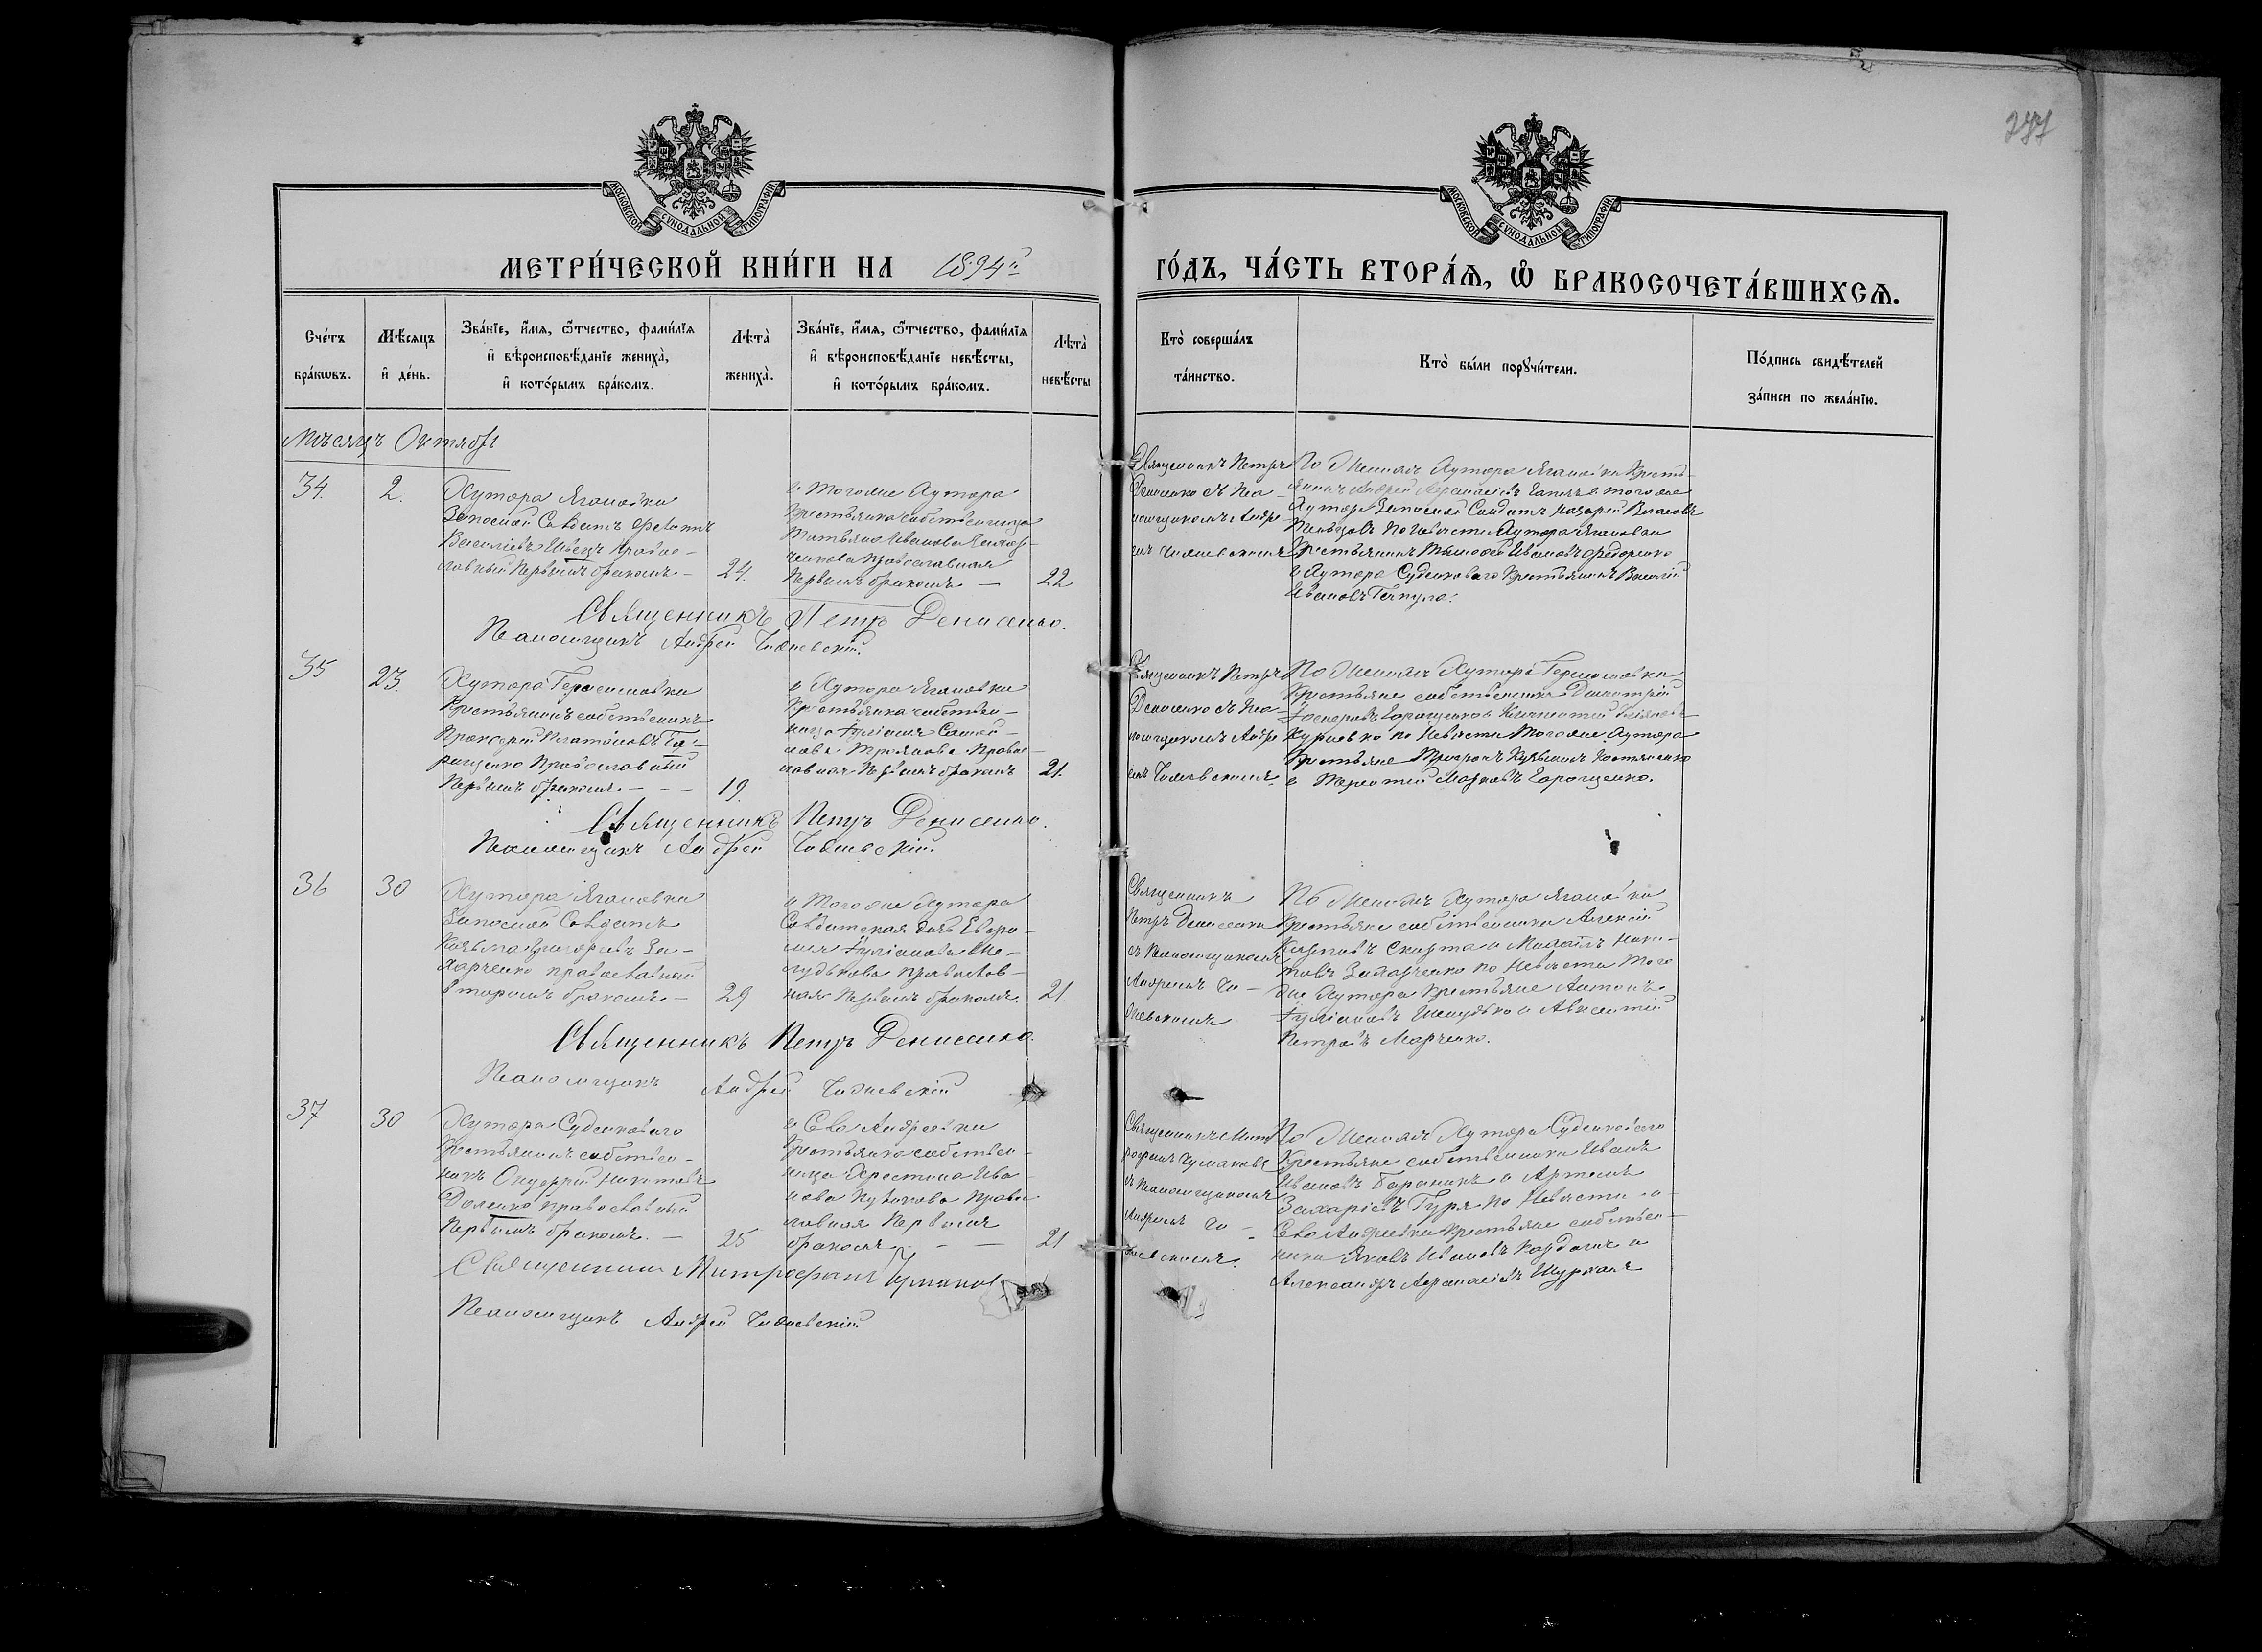 277
МОСКОВСКОЙ СѴНОДАЛЬНОЙ ТИПОГРАФІИ
МОСКОВСКОЙ СѴНОДАЛЬНОЙ ТИПОГРАФІИ
МЕТРИ́ЧЕСКОЙ КНИ́ГИ НА 1894й
ГО́ДЪ, ЧА́СТЬ ВТОРА́Ѧ, Ѽ БРАКОСОЧЕТА́ВШИХСѦ.
Сче́тъ
бра́кѡвъ.
Мѣ́сяцъ
и҆ де́нь.
Зва́нїе, и҆́мѧ, ѻ҆́тчество, фами́лїѧ
и҆ вѣроисповѣ́данїе жениха̀,
и҆ кото́рымъ бра́комъ.
Лѣ́та̀
жениха̀.
Зва́нїе, и҆́мѧ, ѻ҆́тчество, фами́лїѧ
и҆ вѣроисповѣ́данїе невѣ́сты,
и҆ кото́рымъ бра́комъ.
Лѣ́та̀
невѣ́сты
Кто̀ соверша́лъ
та́инство.
Кто̀ бы́ли порꙋчи́тели.
По́дпись свидѣ́телей
за́писи по жела́нїю.
Мѣсяцъ Октябрь
34.
2.
Хутора Ягановки
Запасной Солдатъ
Васильевъ Швецъ Правос-
лавный Первымъ бракомъ —
24.
и Тогоже Хутора
Крестьянка собственница
Татьяна Иванова
Православная
Первымъ бракомъ —
22
Священникъ Петръ
Денисенко съ Пса-
ломщикомъ Андре-
емъ
По Женихѣ Хутора Ягановки Кресть-
янинъ Андрей Афанасіевъ и того же
Хутора Запасной Солдатъ Назарій Власовъ
по Невѣсте Хутора Ягановки
Крестьянинъ Тимофей Ивановъ Федоренко
и Хутора Суденкового Крестьянинъ Василій
Ивановъ
Священникъ Петръ Денисенко.
Псаломщикъ Андрей
35
23.
Хутора Герасимовки
Крестьянинъ собственникъ
Прокофій Платоновъ Га-
ращенко Православный
Первымъ бракомъ — — —
19.
и Хутора Ягановки
Крестьянка собствен-
ница Іуліанія
Троянова Правос-
лавная Первымъ бракомъ
21.
Священникъ Петръ
Денисенко съ Пса-
ломщикомъ Андре-
емъ
По Женихѣ Хутора Герасимовки
Крестьяне собственники Димитрій
Гаращенко и
по Невѣсте Того же Хутора
Крестьяне Трофимъ Кузьминъ Костяненко
и Терентій Марковъ Гаращенко.
Священникъ Петръ Денисенко.
Псаломщикъ Андрей
36
30
Хутора Ягановки
Запасной Солдатъ
Козьма Григорьевъ За-
харченко православный
вторымъ бракомъ —
29
и Того же Хутора
Солдатская дочь Евфро-
Іуліанова Ше-
лудькова православ-
ная Первымъ бракомъ.
21.
Священникъ
Петръ Денисенко
съ Псаломщикомъ
Андреемъ
По Женихѣ Хутора Ягановки
Крестьяне собственники Алексій
Карповъ Скирта и Михаилъ Ники-
товъ Захарченко по Невѣсте Того
же Хутора Крестьяне Антонъ
Іуліановъ Шелудько и Авксентій
Петровъ Марченко.
Священникъ Петръ Денисенко.
Псаломщикъ Андрей
37
30
Хутора Суденкового
Крестьянинъ собствен-
никъ Онуфрій Никитовъ
Доленко православный
Первымъ бракомъ. —
25
и Села Андреевки
Крестьянка собствен-
ница Христина Ива-
нова Куликова Правос-
лавная Первымъ
бракомъ — —
21
Священникъ Мит-
рофанъ Чумаковъ
съ Псаломщикомъ
Андреемъ
По Женихѣ Хутора Суденкового
Крестьяне собственники Иванъ
Ивановъ Бараникъ и Артемъ
Захаріевъ Гуря по Невѣсте
Села Андреевки Крестьяне собствен-
ники Яковъ Ивановъ и
Александръ Афанасіевъ Шуркалъ
Священникъ Митрофанъ Чумаковъ
Псаломщикъ Андрей